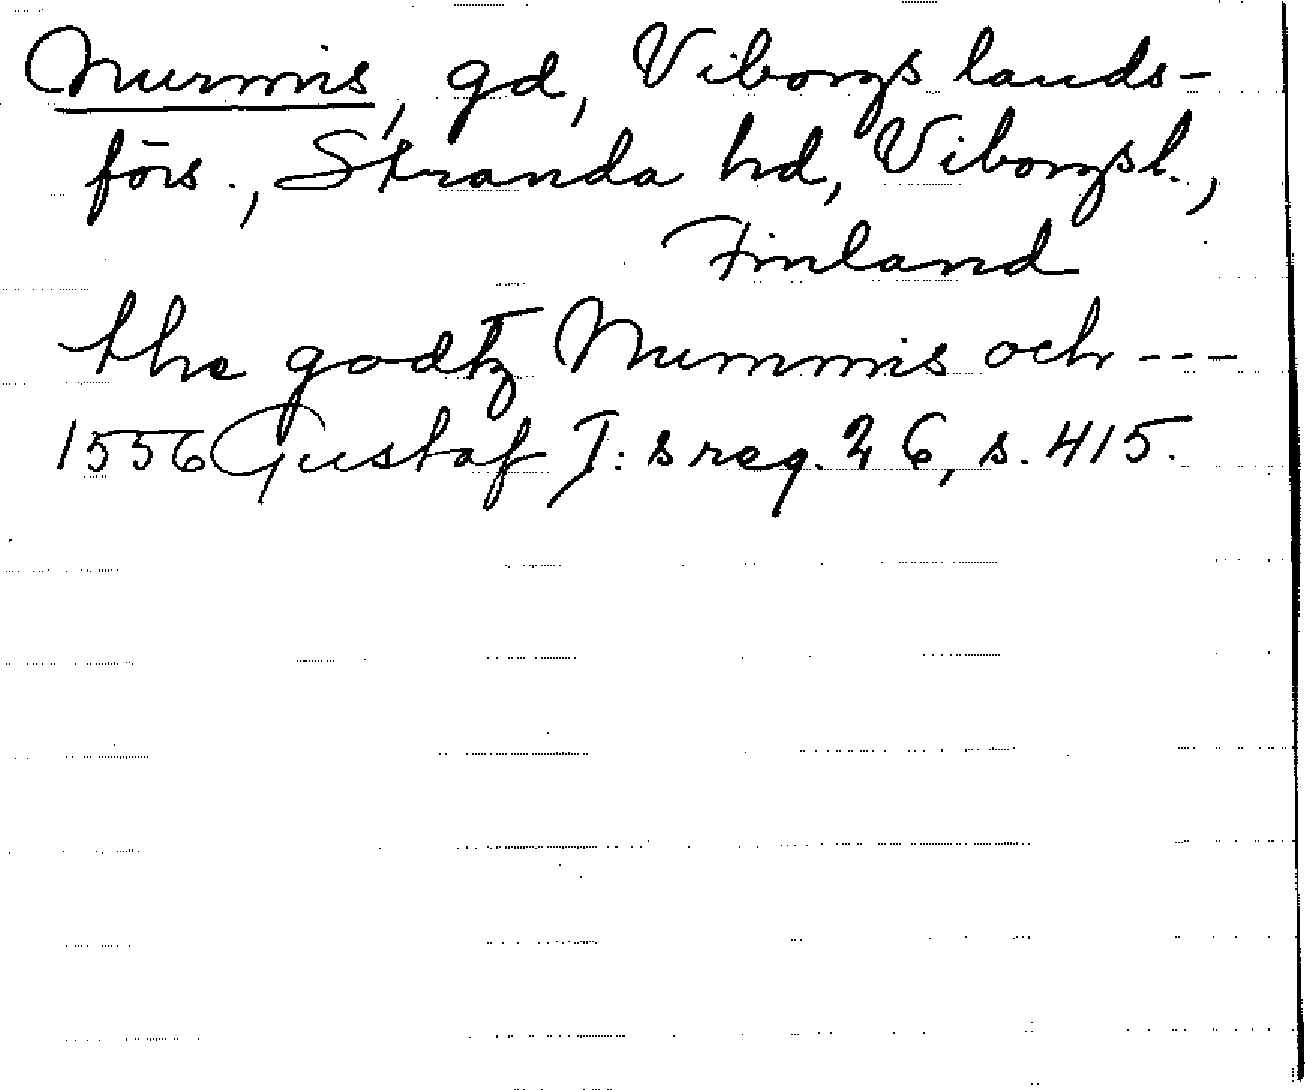 Nurmis, gd, Viborgs lands-
förs., Stranda hd, Viborgsl.,
Finland
the godtz Nummis och ---
1556 Gustaf I:s reg. 26, s. 415.